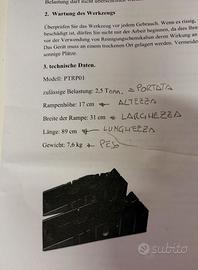 2. Wartung des Werkzeugs
Überprüfen Sie das Werkzeug vor jedem Gebrauch. Wenn es rissig,
beschädigt ist, dürfen Sie nicht mit der Arbeit beginnen, da dies Ihre
vor der Verwendung von Reinigungschemikalien deren Wirkung an
Das Gerät muss an einem trockenen Ort gelagert werden. Vermeiden
sonnige Plätze.
3. technische Daten.
Modell: PTRP01
zulässige Belastung: 2,5 Tonn. → PORTATA
Rampenhöhe: 17 cm ← ALTEZZA
Breite der Rampe: 31 cm ← LARGHEZZA
Länge: 89 cm ← LUNGHEZZA
Gewicht: 7,6 kg ← PESO
subito